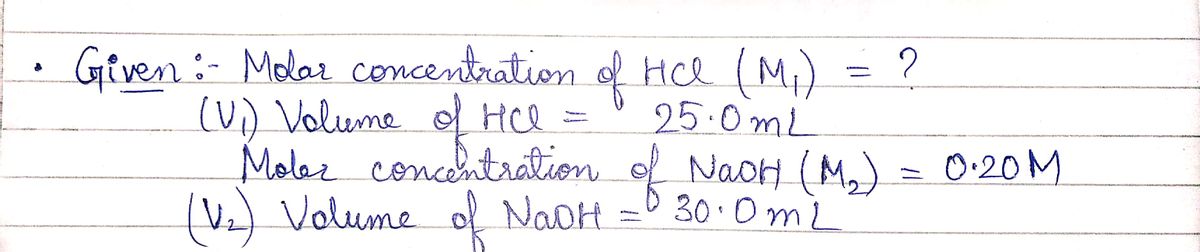 • Given :- Molar concentration of HCl (M₁) = ?
(V₁) Volume of HCl = 25.0 mL
Molar concentration of NaOH (M₂) = 0.20 M
(V₂) Volume of NaOH = 30.0 mL